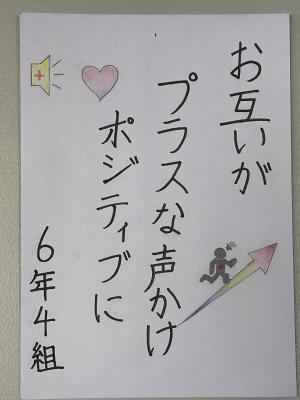 お互いが
プラスな声かけ
ポジティブに
6年4組